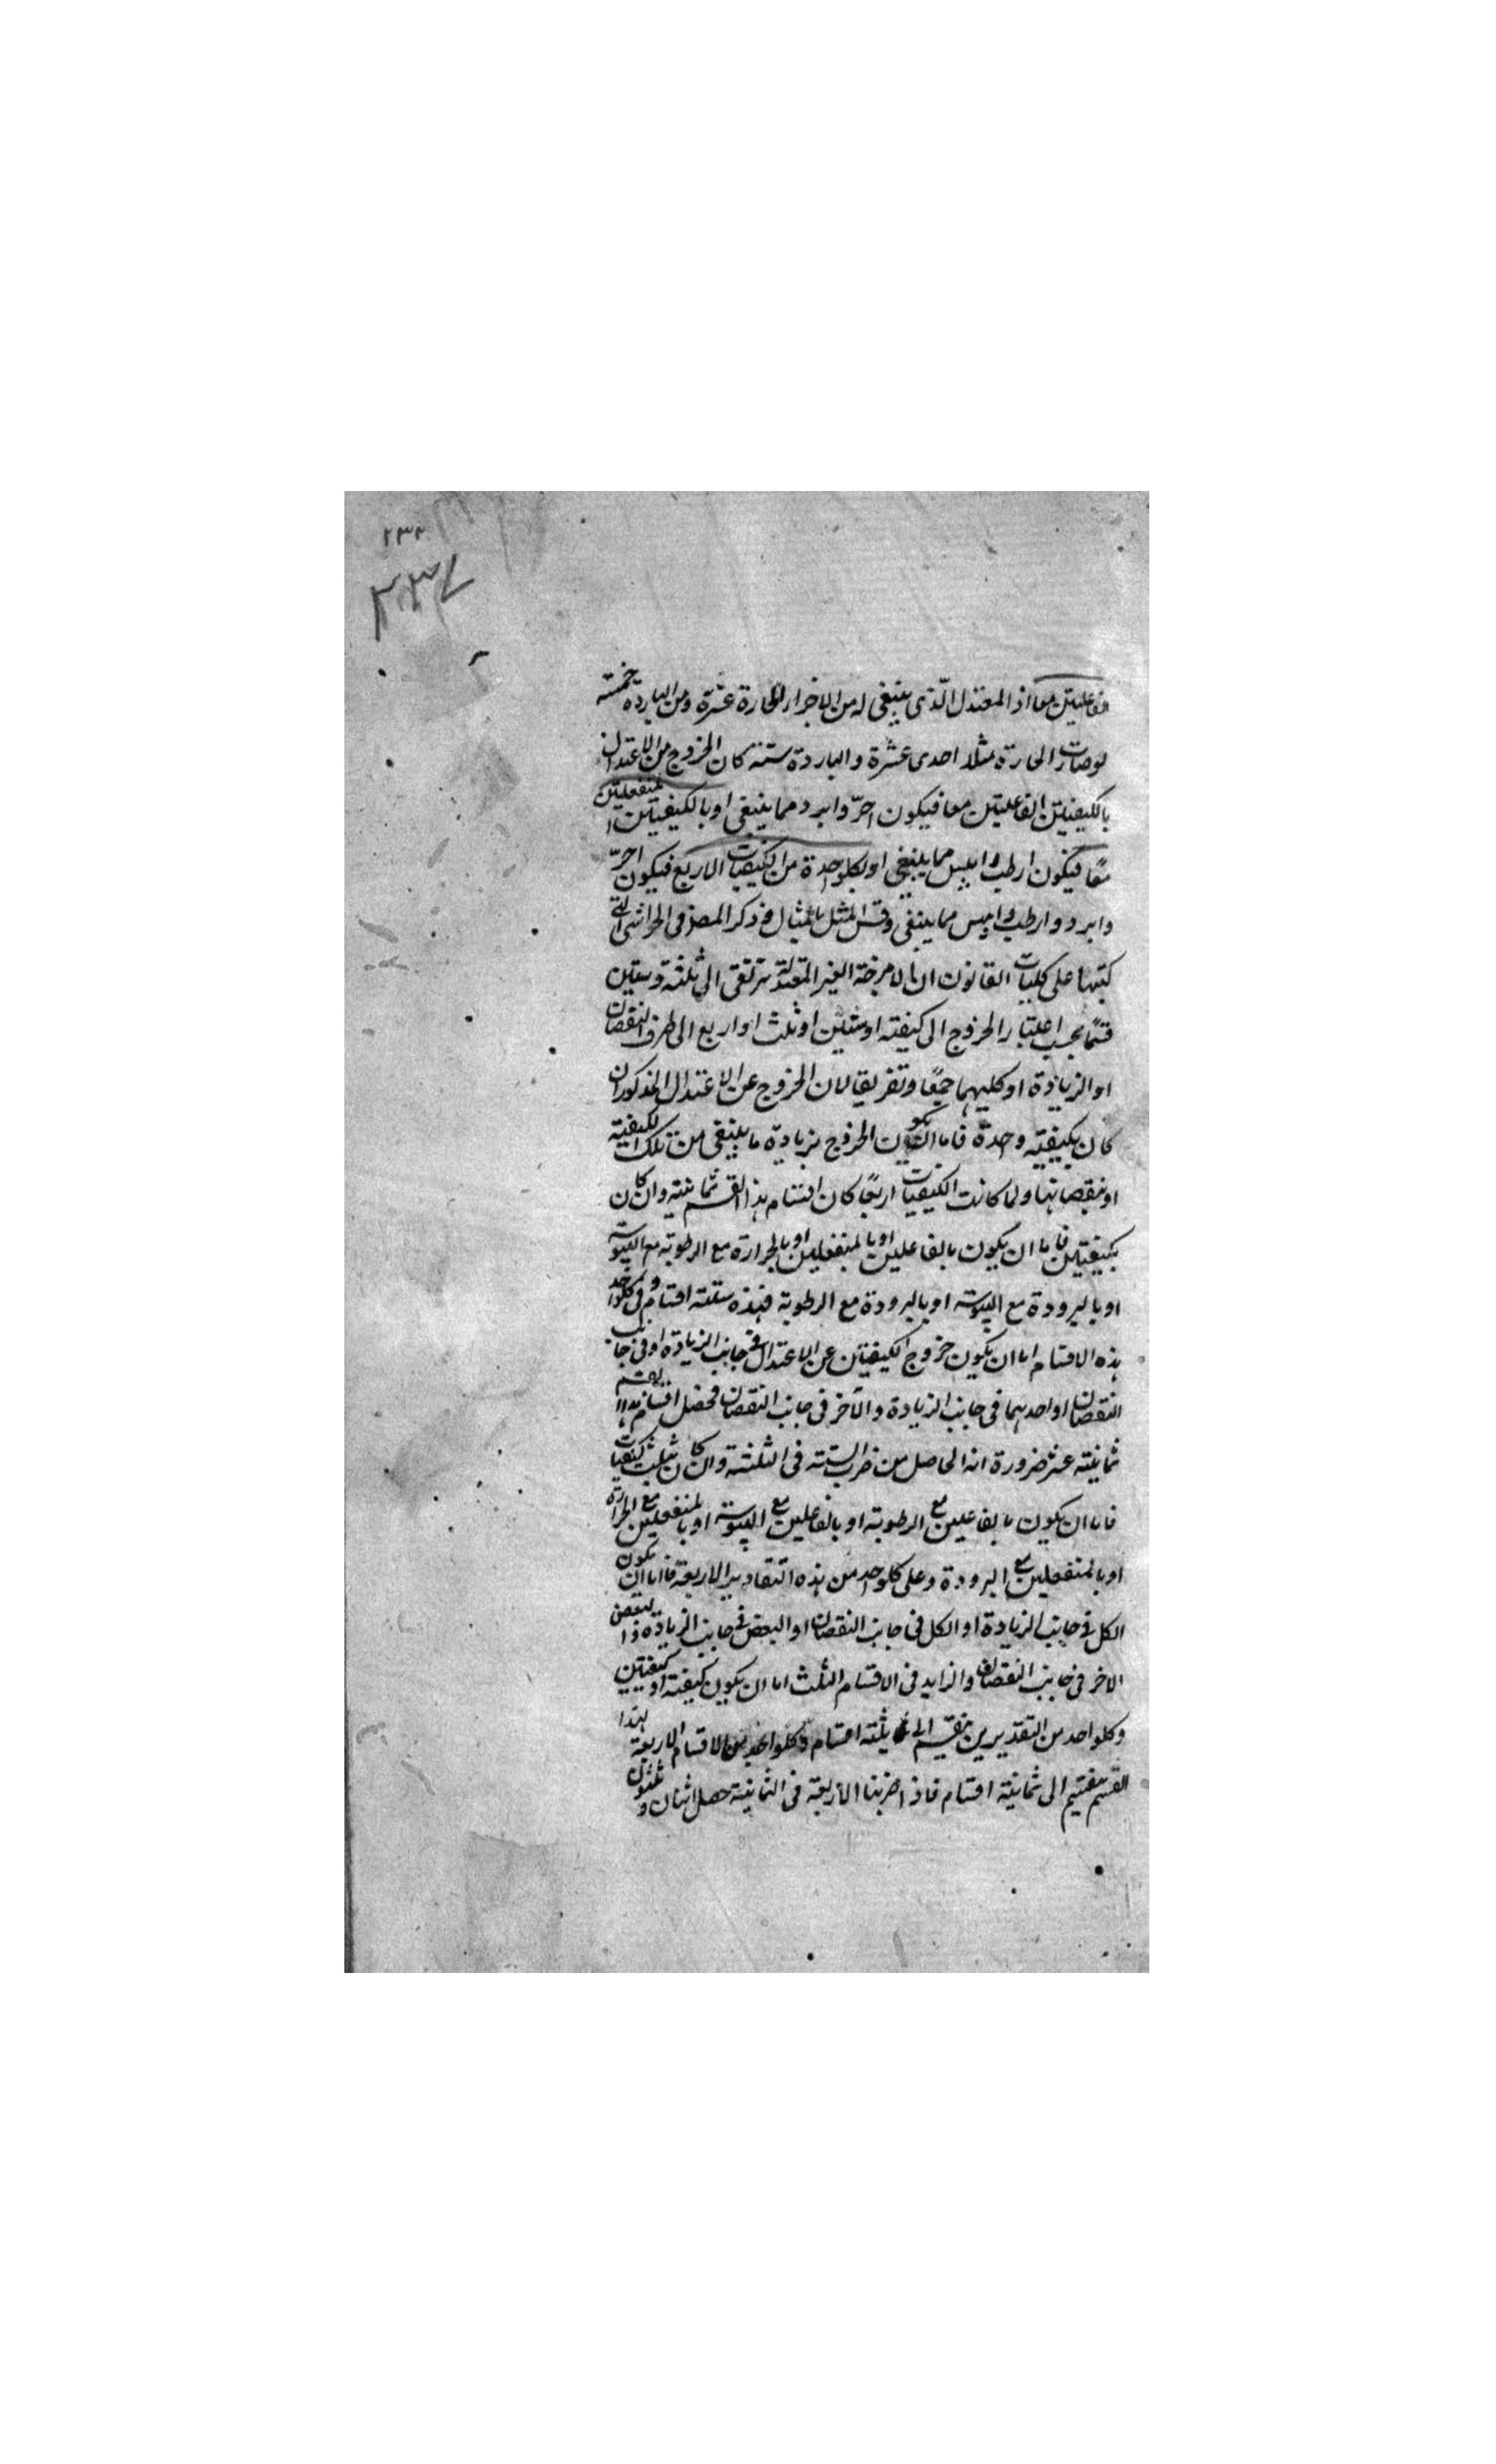 ٢٣٢
٢٣٧
الفاعليتين معا اذ المعتدل الذى ينبغى له من الاجزاء الحارة عشرة ومن الباردة خمسته
لوصارت الحارة مثلا احدى عشرة والباردة ستته كان الخروج من الاعتدال
بالكيفيتين الفاعليتين معا فيكون احرّ وابرد مما ينبغى او بالكيفيتين المنفعليتين
معًا فيكون ارطب وايبس مما ينبغى او بكلواحدة من الكيفيات الاربع فيكون احرّ
وابرد وارطب وايبس مما ينبغى وقس المثل بالمثال و ذكر المصنف فى الحواشى التى
كتبها على كليات القانون ان الامزجة الغير المعتدلة ترتقى الى ثلثة وستين
قسمًا بحسب اعتبار الخروج الى كيفيته او ثنتين او ثلث او اربع الى طرف النقصان
او الزيادة او كليهما جمعًا وتفريقا لان الخروج عن الاعتدال المذكور ان
كان بكيفيته وحدة فاما ان يكون الخروج بزيادة ما ينبغى من تلك الكيفيته
او بنقصانها ولما كانت الكيفيات اربعًا كان اقسام هذا القسم ثمانيته وان كان
بكيفيتين فاما ان يكون بالفاعلين او بالمنفعلين او بالحرارة مع الرطوبته مع اليبوسته
او بالبرودة مع اليبوسته او بالبرودة مع الرطوبته فهذه ستته اقسام وفى كلواحد
هذه الاقسام اما ان يكون خروج الكيفيتين عن الاعتدال فى جانب الزيادة او فى جانب
النقصان او احدهما فى جانب الزيادة والآخر فى جانب النقصان فحصل اقسام هذا القسم
ثمانيته عشر ضرورة انه الحاصل من ضرب الستته فى الثلثته وان كان بثلث كيفيات
فاما ان يكون بالفاعلين مع الرطوبته او بالفاعلين مع اليبوسته او بالمنفعلين مع الحرارة
او بالمنفعلين مع البرودة وعلى كلواحد من هذه التقادير الاربعة فاما ان يكون
الكل فى جانب الزيادة او الكل فى جانب النقصان او البعض فى جانب الزيادة والبعض
الاخر فى جانب النقصان والزايد فى الاقسام الثلث اما ان يكون كيفيته او كيفيتين
وكلواحد من التقديرين ينقسم الى ثلثته اقسام وكلواحد من الاقسام الاربعة لهذا
القسم ينقسم الى ثمانيته اقسام فاذا ضربنا الاربعة فى الثمانيته حصل اثنان وثلثون